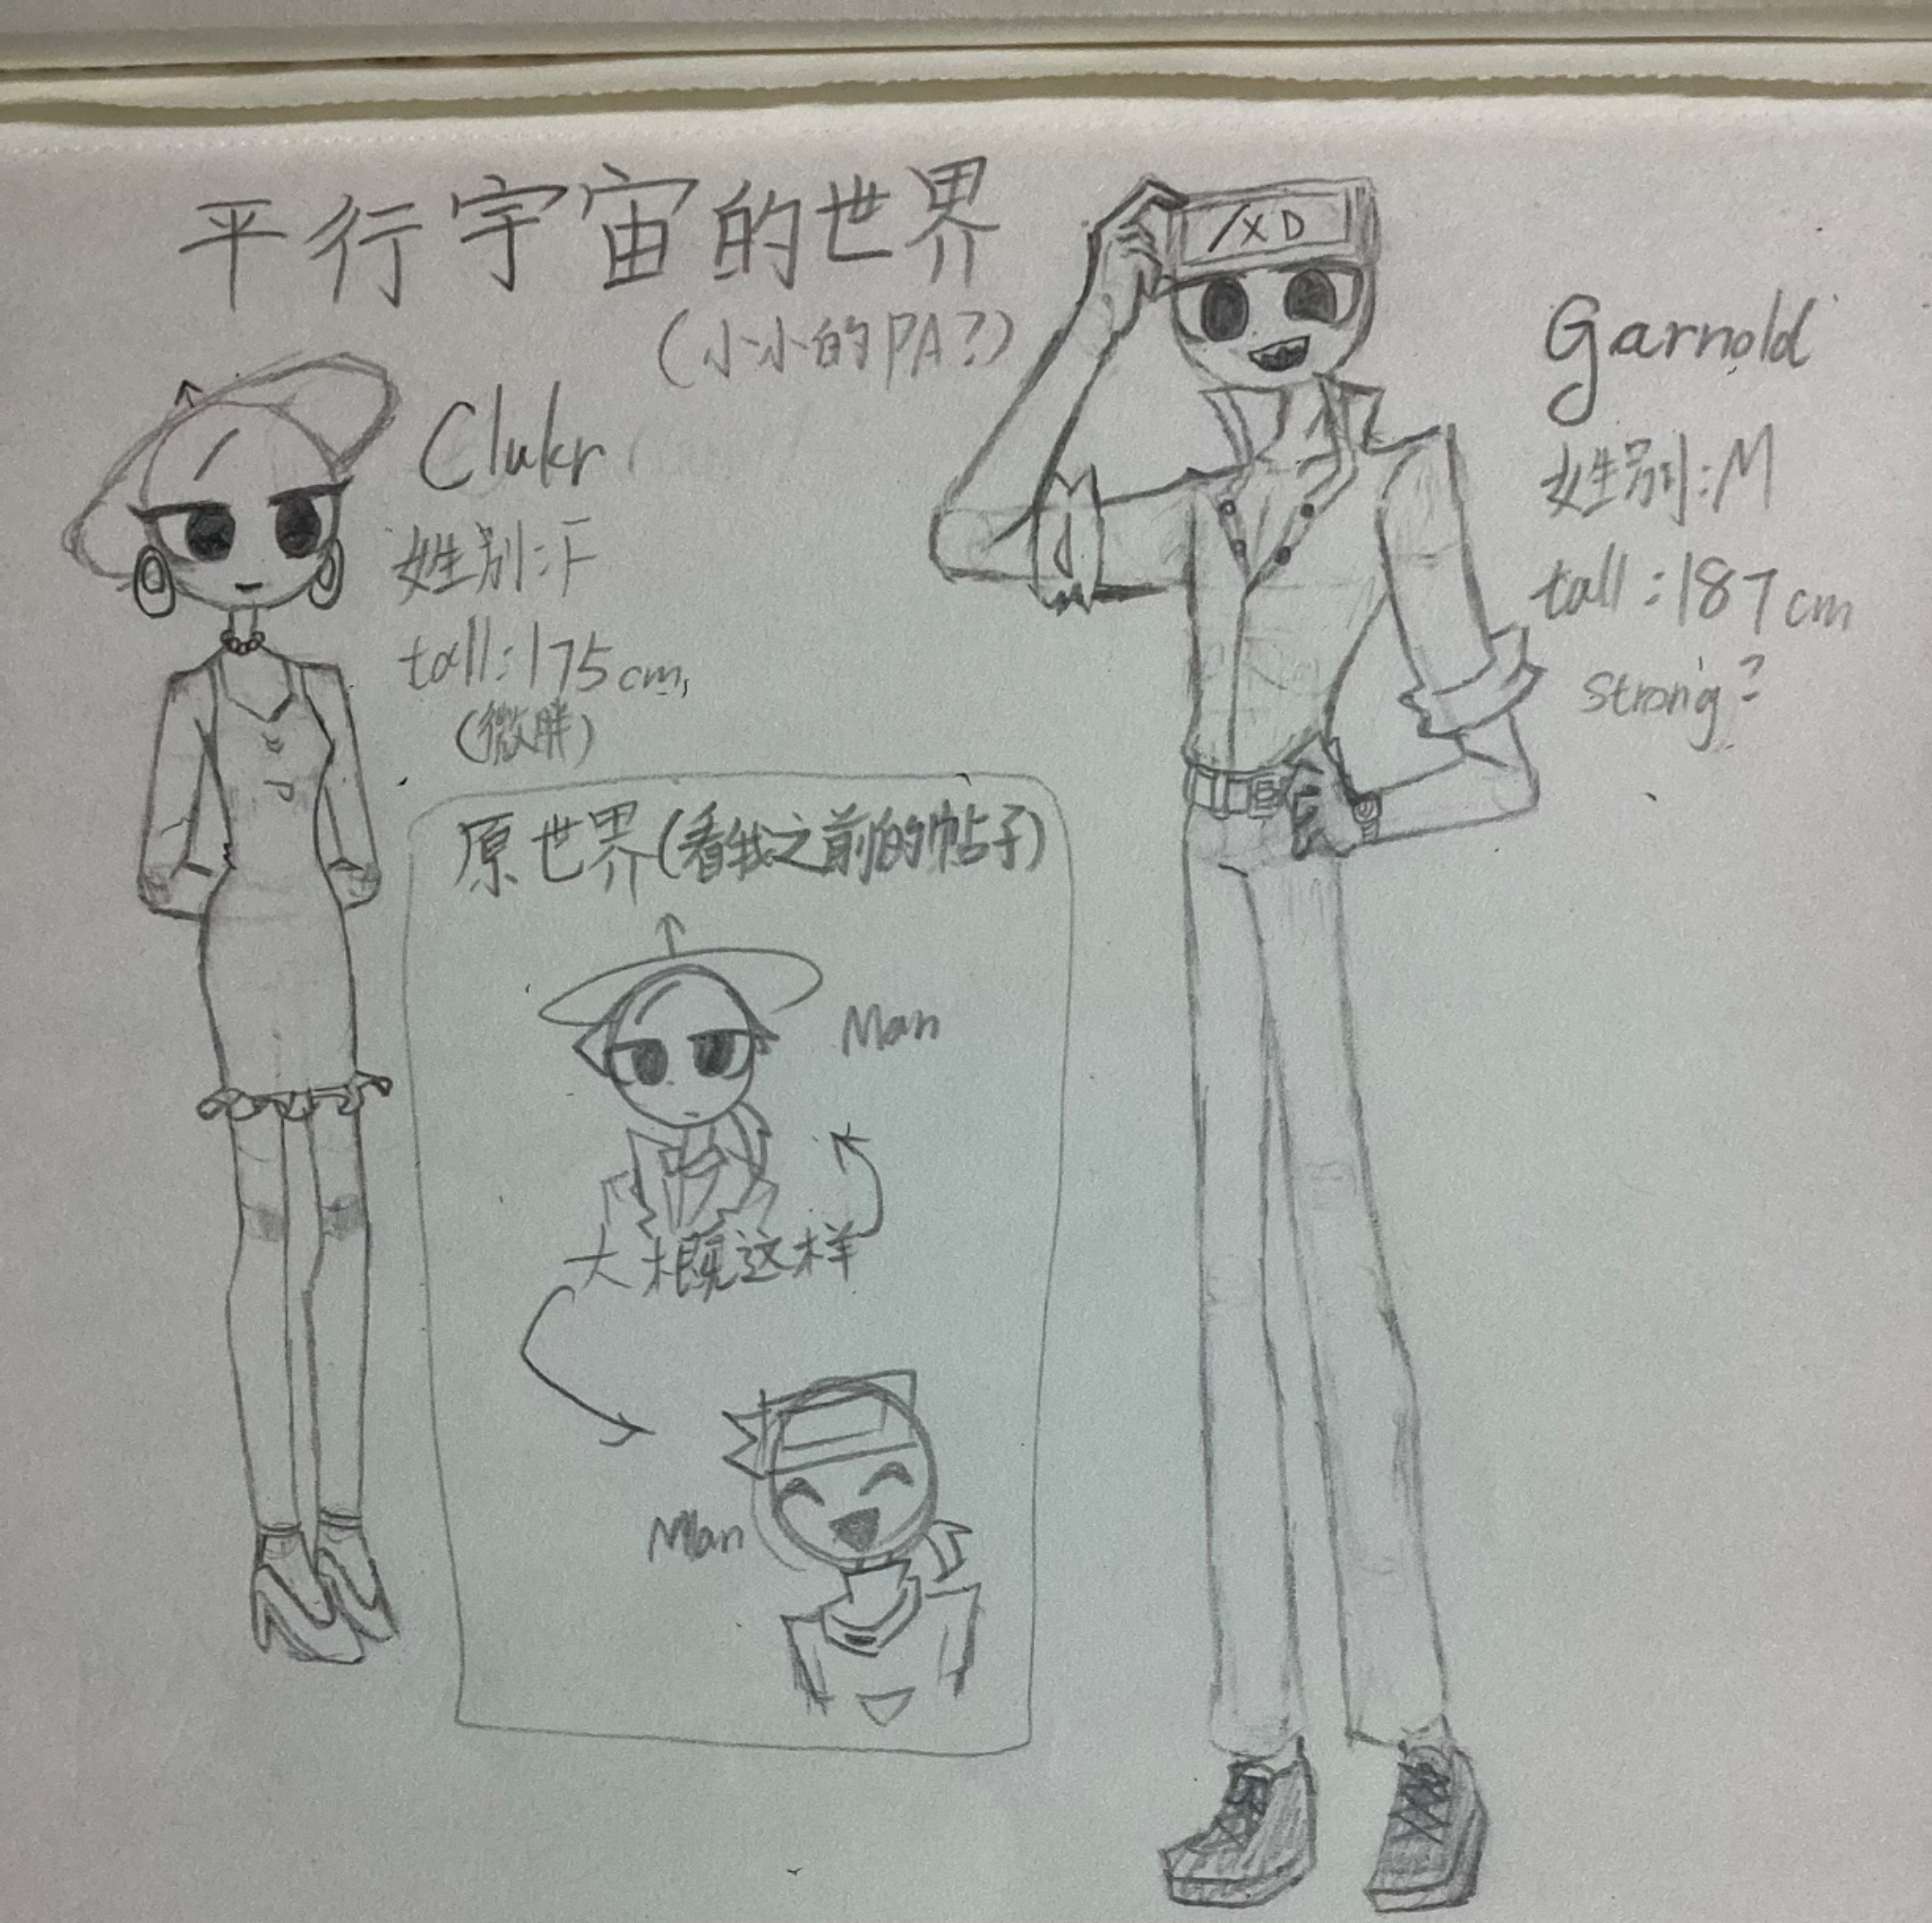 平行宇宙的世界
(小小的PA?)
Clukr
姓别:F
tall:175cm,
(微胖)
/XD
Garnold
姓别:M
tall:187cm
strong?
原世界(看我之前的帖子)
Man
大概这样
Man